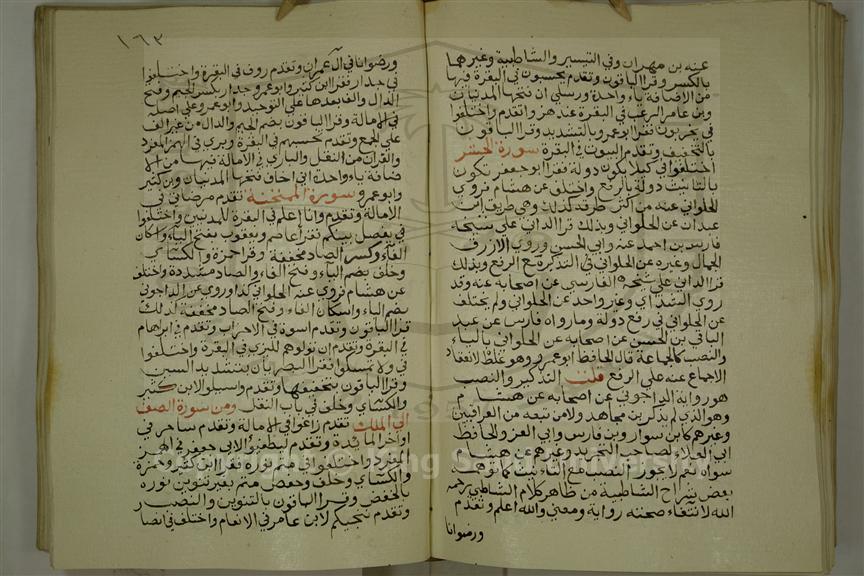 عنه بن مهران وفي التيسير والشاطبية وغيرهما
بالكسر وقرا الباقون وتقدم يحسبون في البقرة فيها
من الاضافة ياء واحدة ورسلي ان فتحها المدنيان
وبن عامر الرعب في البقرة عند هزوا تقدم واختلفوا
في يخربون فقرا ابو عمرو بالتشديد وقرا الباقون
بالتخفيف وتقدم البيوت في البقرة سورة الحشر
اختلفوا في كيلا يكون دولة فقرا ابو جعفر تكون
بالتانيث دولة بالرفع واختلف عن هشام فروي
الحلواني عنه من اكثر طرقه كذلك وهي طريق ابن
عبدان عن الحلواني وبذلك قرا الداني على شيخه
فارس بن احمد عنه وابي الحسن وروي الازرق
الجمال وغيره عن الحلواني في التذكرة مع الرفع وبذلك
قرا الداني على شيخه الفارسي عن اصحابه عنه وقد
روي الشذائي وغير واحد عن الحلواني ولم يختلف
عن الحلواني في رفع دولة وما رواه فارس عن عبد
الباقي بن الحسن عن اصحابه عن الحلواني بالياء
والنصب كالجماعة قال الحافظ ابو عمرو وهو غلط لانعقاد
الاجماع عنه على الرفع قلت التذكير والنصب
هو رواية الداجوني عن اصحابه عن هشام
وهو الذي لم يذكر بن مجاهد ولا من تبعه من العراقيين
وغيرهم كابن سوار وبن فارس وابي العز والحافظ
ابي العلاء وكصاحب التجريد وغيرهم عن هشام
سواه نعم لا يجوز النصب مع التانيث كما توهمه
بعض شراح الشاطبية من ظاهر كلام الشاطبي رحمه
الله لانتفاء صحته رواية ومعني والله اعلم وتقدم
ورضوانا
١٦٣
ورضوانا في آل عمران وتقدم روف في البقرة واختلفوا
في جدار فقرا ابن كثير وابو عمرو جدار بكسر الجيم وفتح
الدال والف بعدها على التوحيد وابو عمرو على اصله
في الامالة وقرا الباقون بضم الجيم والدال من غير الف
على الجمع وتقدم تحسبهم في البقرة وبري في الهمز المفرد
والقران من النقل والباري في الامالة فيها من الا
ضافة ياء واحدة اني اخاف فتحها المدنيان وبن كثير
وابو عمرو سورة الممتحنة تقدم مرضاتي في
الامالة وتقدم وانا اعلم في البقرة للمدنيين واختلفوا
في يفصل بينكم فقرا عاصم ويعقوب بفتح الياء واسكان
الفاء وكسر الصاد مخففة وقرا حمزة والكسائي
وخلف بضم الياء وفتح الفاء والصاد مشددة واختلف
عن هشام فروي عنه الحلواني كذا وروي عن الداجوني
بضم الياء واسكان الفاء وفتح الصاد مخففة وكذلك
قرا الباقون وتقدم اسوة في الاحزاب وتقدم في ابراهام
في البقرة وتقدم ان تولوهم للبزي في البقرة واختلفوا
في ولا تمسكوا فقرا البصريان بتشديد السين
وقرا الباقون بتخفيفها وتقدم واسيلوا لابن كثير
والكسائي وخلف في باب النقل ومن سورة الصف
الي الملك تقدم زاغوا في الامالة وتقدم ساحر في
اواخر المائدة وتقدم ليطفئوا لابي جعفر في الهمز
المفرد واختلفوا في متم نوره فقرا ابن كثير وحمزة
والكسائي وخلف وحفص متم بغير تنوين نوره
بالخفض وقرا الباقون بالتنوين والنصب
وتقدم تنجيكم لابن عامر في الانعام واختلف في انصار